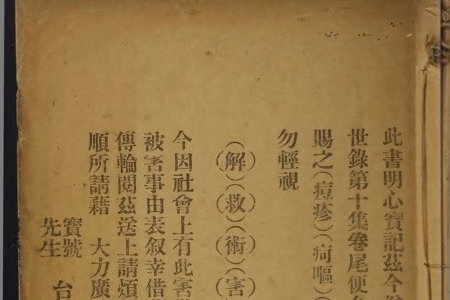 此書明心寶記茲今
世錄第十集卷尾便
賜之(痘疹)疴嘔(
勿輕視
(解)(救)(術)(害)
今因社會上有此害
被害事由表叙幸借
傳輪閱茲送上請煩
順所請藉 大力廣
寶號
先生 台